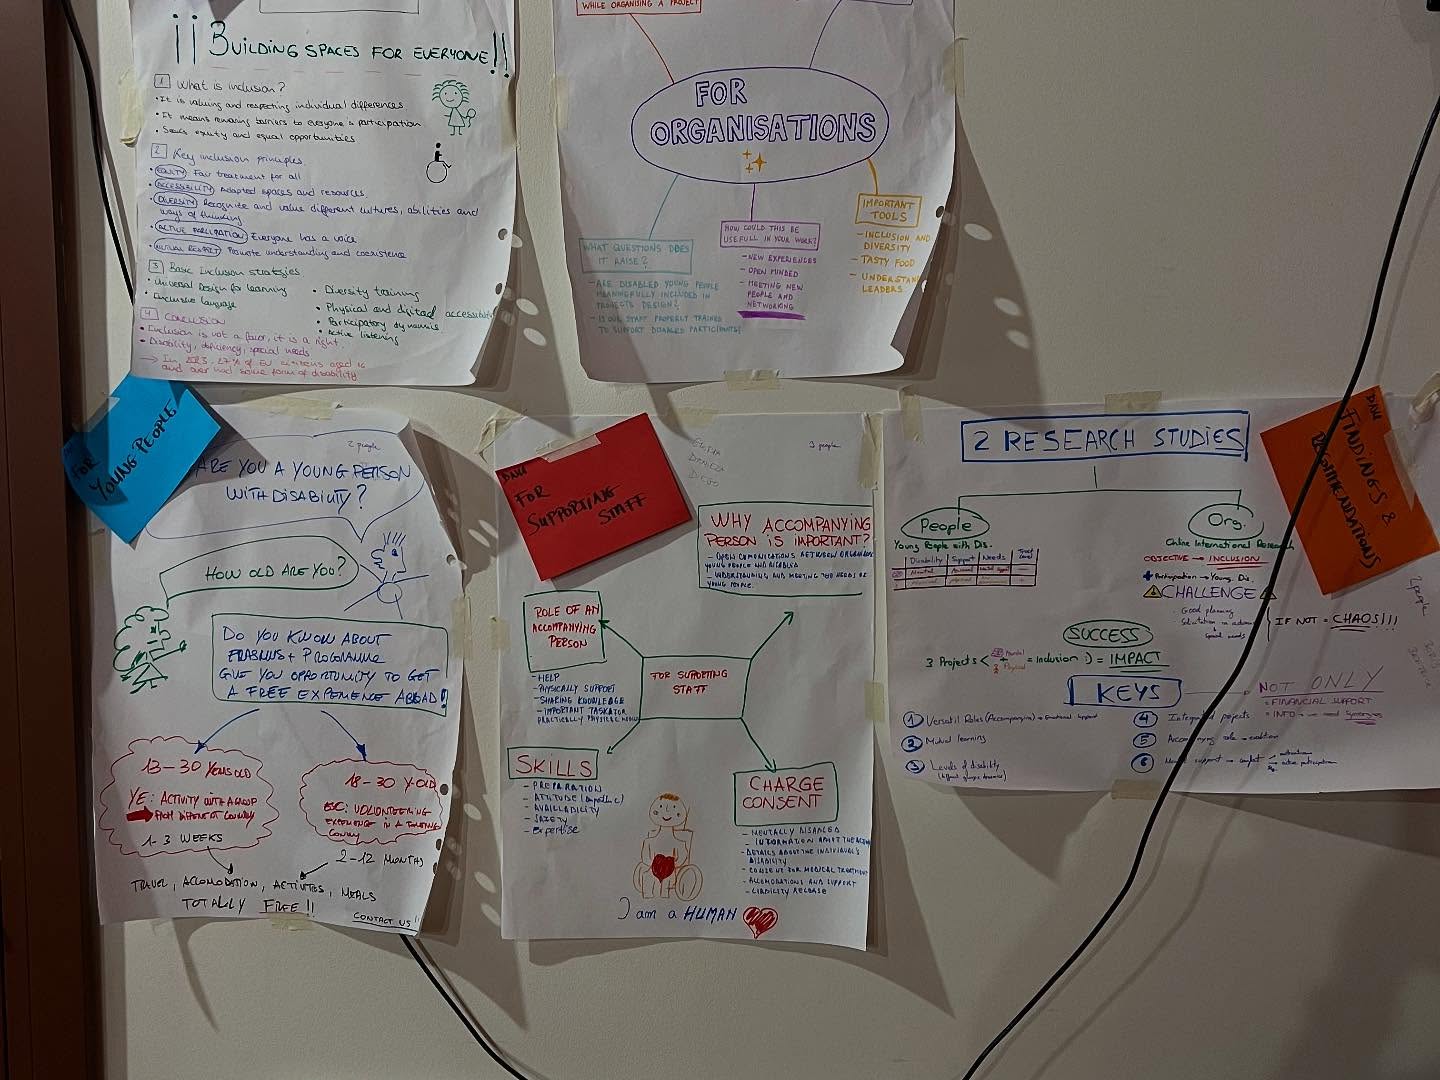 ¡¡BUILDING SPACES FOR EVERYONE!!
1 What is inclusion?
• It is valuing and respecting individual differences
• It means removing barriers to everyone's participation
• Seeks equity and equal opportunities
2 Key inclusion principles
• EQUITY Fair treatment for all
• ACCESSIBILITY Adapted spaces and resources
• DIVERSITY Recognize and value different cultures, abilities and
ways of thinking
• ACTIVE PARTICIPATION Everyone has a voice
• MUTUAL RESPECT Promote understanding and coexistence
3 Basic Inclusion strategies
• Universal Design for learning
• Inclusive language
• Diversity training
• Physical and digital accessibility
• Participatory dynamics
• Active listening
4 CONCLUSION
• Inclusion is not a favor, it is a right.
• Disability, deficiency, special needs
→ In 2023, 27% of EU citizens aged 16
and over had some form of disability
WHILE ORGANISING A PROJECT
FOR
ORGANISATIONS
WHAT QUESTIONS DOES
IT RAISE?
- ARE DISABLED YOUNG PEOPLE
MEANINGFULLY INCLUDED IN
PROJECTS DESIGN?
- IS OUR STAFF PROPERLY TRAINED
TO SUPPORT DISABLED PARTICIPANTS?
HOW COULD THIS BE
USEFULL IN YOUR WORK?
- NEW EXPERIENCES
- OPEN MINDED
- MEETING NEW
PEOPLE AND
NETWORKING
IMPORTANT
TOOLS
- INCLUSION AND
DIVERSITY
- TASTY FOOD
- UNDERSTAND
LEADERS
FOR
YOUNG PEOPLE
2 people
ARE YOU A YOUNG PERSON
WITH DISABILITY?
HOW OLD ARE YOU?
DO YOU KNOW ABOUT
ERASMUS+ PROGRAMME
GIVE YOU OPPORTUNITY TO GET
A FREE EXPERIENCE ABROAD!
13-30 YEARS OLD
YE: ACTIVITY WITH A GROUP
FROM DIFFERENT COUNTRY
1-3 WEEKS
18-30 Y.OLD
ESC: VOLUNTEERING
EXPERIENCE IN A
COUNTRY
2-12 MONTHS
TRAVEL, ACCOMODATION, ACTIVITIES, MEALS
TOTALLY FREE!!
CONTACT US!!
FOR
SUPPORTING
STAFF
3 people
WHY ACCOMPANYING
PERSON IS IMPORTANT?
- OPEN COMUNICATIONS BETWEEN ORGANISERS
YOUNG PEOPLE AND DISABLED
- UNDERSTANDING AND MEETING THE NEEDS OF
YOUNG PEOPLE.
ROLE OF AN
ACCOMPANYING
PERSON
- HELP
- PHYSICALLY SUPPORT
- SHARING KNOWLEDGE
- IMPORTANT
FOR SUPPORTING
STAFF
SKILLS
- PREPARATION
- ATTITUDE
- AVAILLABILITY
- SAFETY
- Expertise
CHARGE
CONSENT
- MENTALLY DISABLED
- INFORMATION ABOUT THE
- DETAILS ABOUT THE INDIVIDUAL'S
DISABILITY
- CONSENT FOR MEDICAL TREATMENT
- ACCOMODATIONS AND SUPPORT
- LIABILITY RELEASE
I am a HUMAN
2 RESEARCH STUDIES
FINDINGS &
RECOMMENDATIONS
2 people
People
Young People with Dis.
Disability Support Needs
Org.
Online International Research
OBJECTIVE → INCLUSION
+ Participation → Young Dis.
CHALLENGE
- Good planning
IF NOT = CHAOS!!!
SUCCESS
3 Projects < = Inclusion :) = IMPACT
KEYS
NOT ONLY
= FINANCIAL SUPPORT
= INFO
1 Versatil Roles (Accompanying) → Emotional Support
2 Mutual learning
3 Levels of disability
4 Integrated projects
5 Accompanying role
6